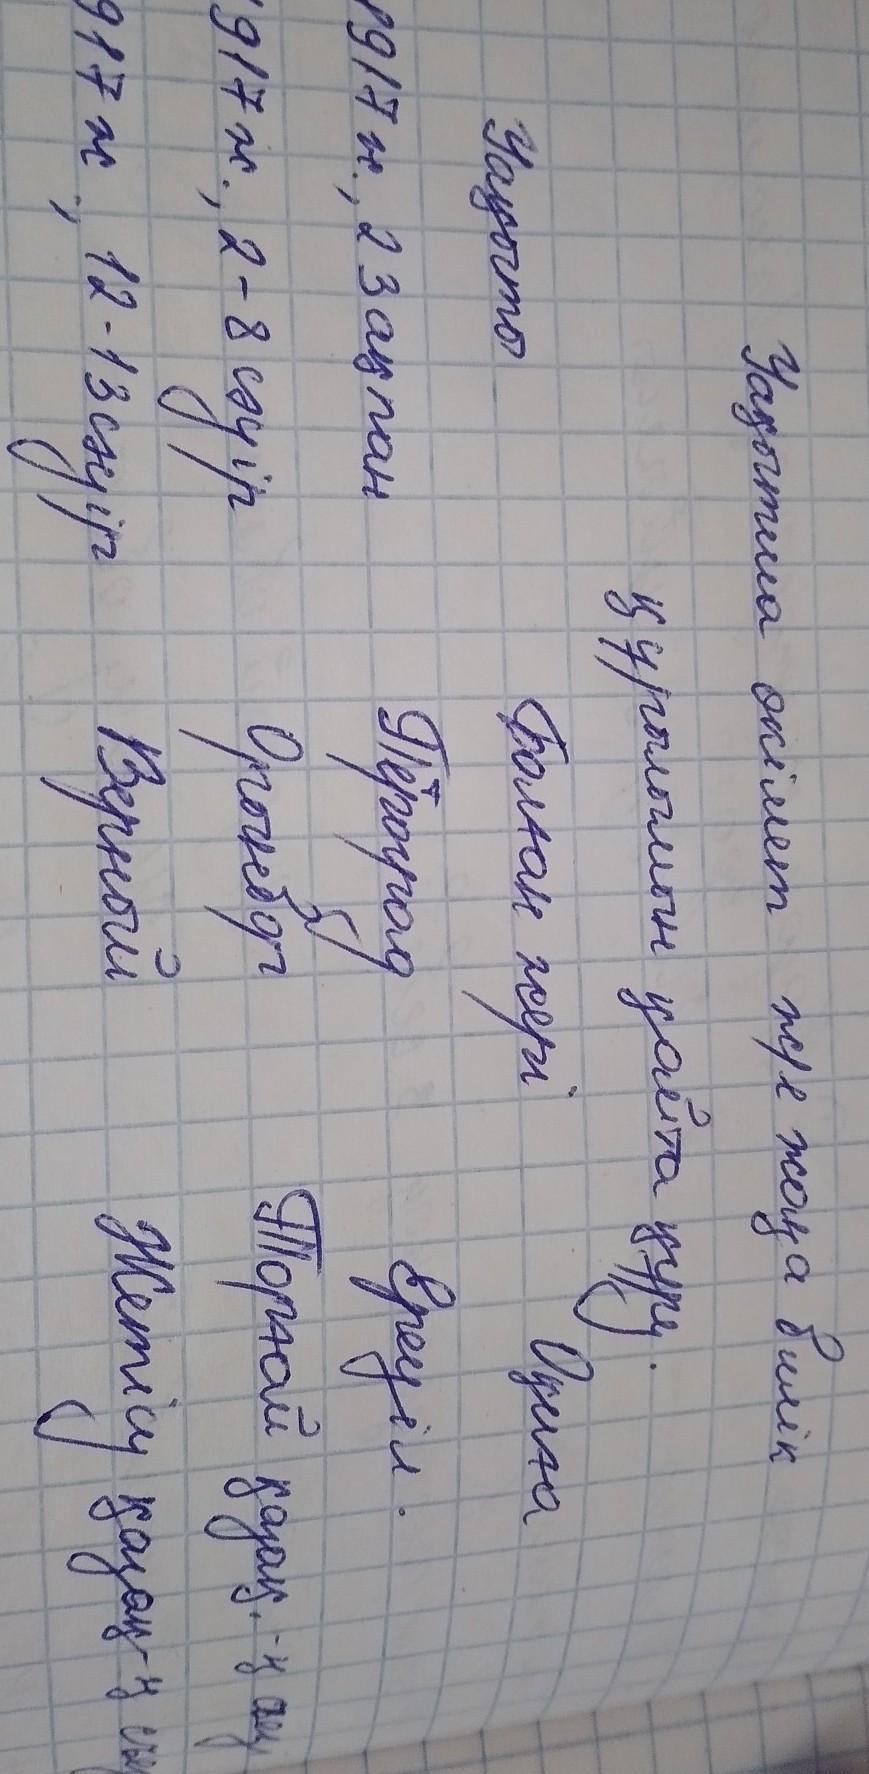 Уақытша өкімет ж/е жаңа билік
құрылымын қайта құру.
Уақыты Болған жері Оқиға
1917 ж, 23 ақпан Петроград Ереуіл.
917 ж., 2-8 сәуір Орынбор Торғай қазақ.-ң
917 ж., 12-13 сәуір Верный Жетісу қазақ-ң